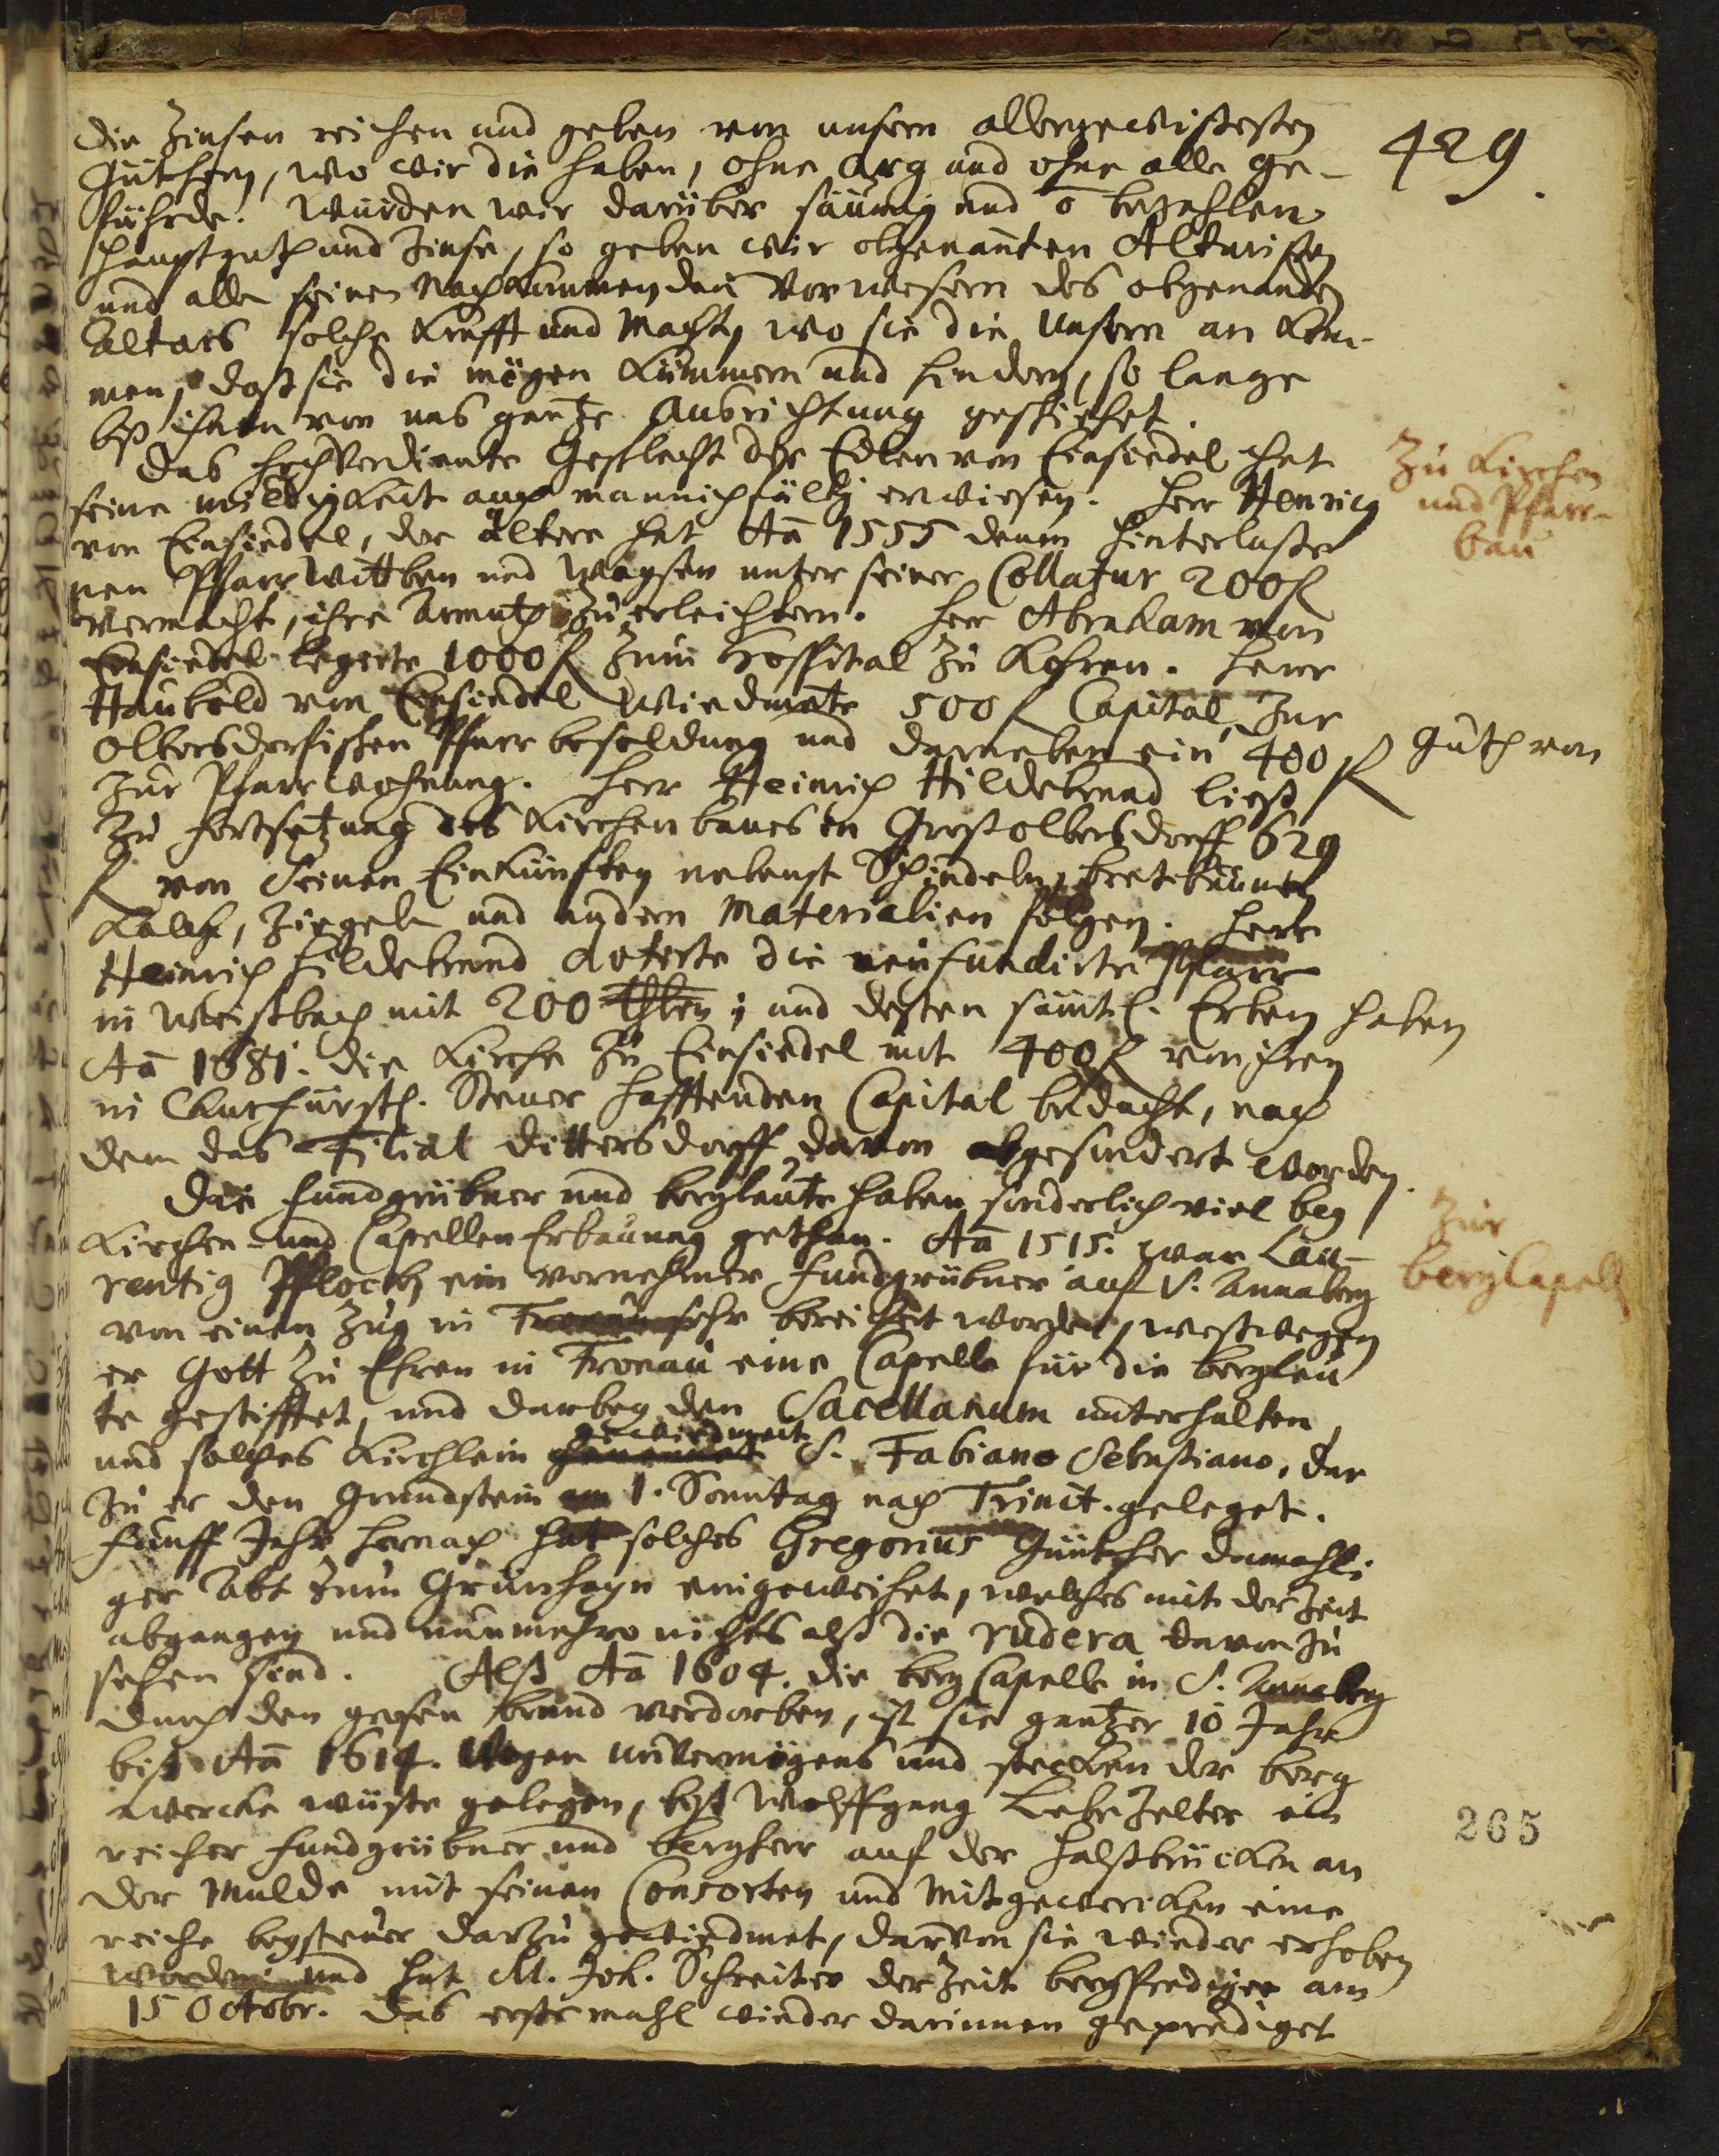 429
die Zinsen reichen und geben von unsern allergewissesten
Güthern, wo wir die haben, ohne Arg und ohne alle ge-
fährde. Würden wir darüber säumig und õ bezahlen
Hauptguth und Zinse, so geben wir obgenanten Altaristen
und allen seinen Nachkummenden Vorwesern des obgenanden
Altars solche Krafft und Macht, wo sie die Unsern an kom-
men, daß sie die mögen kümmern und hindern, so lange
biß ihnen von uns gantze Ausrichtung geschiehet.
Das hochverdiente Geschlecht der Edlen von Einsiedel hat
seine mildigkeit auch mannichfältig erwiesen. Herr Henrich
von Einsiedel, der ältere hat Aõ 1555 denen hinterlaße
nen Pfarrwittben und Waysen unter seiner Collatur 200 fl
vermacht, ihre Armuth zu erleichtern. Herr Abraham von
Einsiedel legirte 1000 fl zum Hospital zu Kohren. Herr
Haubold von Einsiedel wiedmete 500 fl Capital zur
Olbersdorfischen Pfarr besoldung und darneben ein Guth von 400 fl
zur Pfarr wohnung. Herr Heinrich Hildebrand ließ
zu fortsetzung des Kirchenbaues in Großolbersdorff 629
fl von Seinen Einkünfften nebenst Schindeln, bretbäumen
Kalch, Ziegeln und andern Materialien folgen. Herr
Heinrich Hildebrand dotirte die neufundirte Pfarr
in Weißbach mit 200 thlrn; und deßen sämtl. Erben haben
Aõ 1681. die Kirche zu Einsiedel mit 400 fl von ihren
in Churfürstl. Steuer hafftenden Capital bedacht, nach
dem das Filial Dittersdorff davon abgesondert worden.
Die fundgrübner und bergleute haben sonderlich viel bey
Kirchen- und Capellen Erbauung gethan. Aõ 1515. war Lau-
rentig Pflock, ein vornehmer fundgrübner auf S. Annaberg
von einen Zug in Fronau sehr bereichert worden, weßwegen
er Gott zu Ehren in Fronau eine Capelle für die bergleu
te gestifftet, und darbey den Sacellanum unterhalten,
gewiedmet
und solches Kirchlein S. Fabiano Sebastiano, dar
zu er den Grundstein am 1. Sonntag nach Trinit. geleget.
Fünff Jahr hernach hat solches Gregorius Günther damahli-
ger Abt zum Grünhayn eingeweihet, welches mit der Zeit
abgangen und nunmehro nichts alß die rudera davon zu
sehen sind. Alß Aõ 1604. die berg Capelle in S. Annaberg
durch den großen brand verdorben, ist sie gantzer 10 Jahr
biß Aõ 1614. wegen unvermögens und stecken der berg
wercke wüste gelegen, biß Wolffgang Lebzelter ein
reicher fundgrübner und bergherr auf der Halßbrücken an
der Mulde mit seinen Consorten und Mitgewercken eine
reiche beysteuer darzu gewiedmet, darvon sie wieder erhoben
worden: und hat M. Joh. Schreiter der Zeit bergprediger am
15 Octobr. das erste mahl wieder darinnen geprediget
Zu Kirchen
und Pfarr-
bau
Zur
bergCapell
265